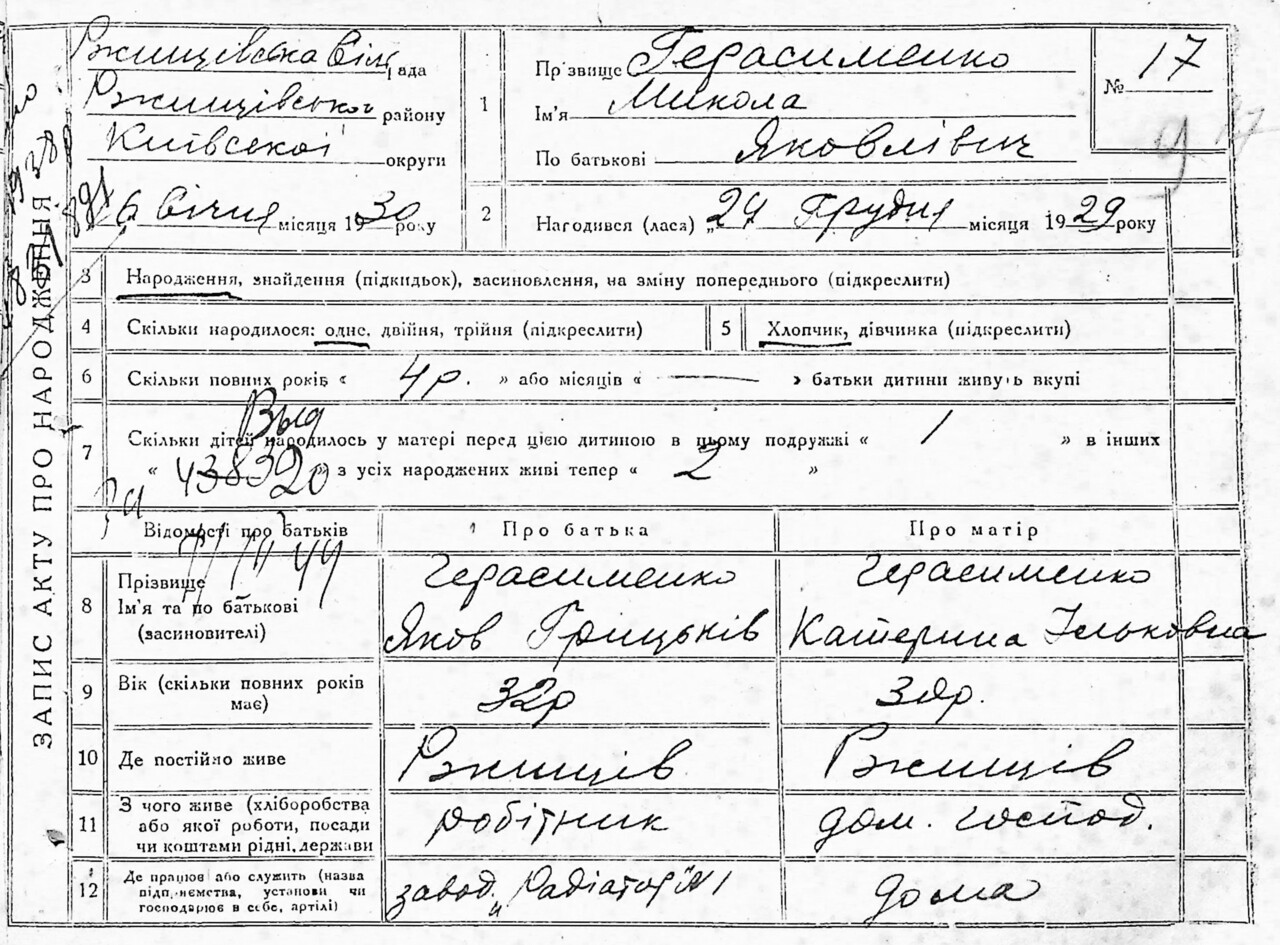 ЗАПИС АКТУ ПРО НАРОДЖЕННЯ
Ржищівська Сільрада
Ржищівського району
Київської округи
6 Січня місяця 1930 року
1
Прізвище Герасименко
Ім'я Микола
По батькові Яковлівич
№ 17
9 17
2
Народився (лася) „24 Грудня місяця 1929 року
3 Народження, знайдення (підкидьок), засиновлення, на зміну попереднього (підкреслити)
4 Скільки народилося: одне, двійня, трійня (підкреслити)
5 Хлопчик, дівчинка (підкреслити)
6 Скільки повних років « 4 р. » або місяців « — » батьки дитини живуть вкупі
Выд
7 Скільки дітей народилось у матері перед цією дитиною в цьому подружжі « 1 » в інших
« » з усіх народжених живі тепер « 2 »
Відомості про батьків
Про батька
Про матір
8 Прізвище
Ім'я та по батькові
(засиновителі)
Герасименко
Яков Грицьків
Герасименко
Катерина Ільковна
9 Вік (скільки повних років
має)
32р
р.
10 Де постійно живе
Ржищів
Ржищів
11 З чого живе (хліборобства
або якої роботи, посади
чи коштами рідні, держави
робітник
дом. господ.
12 Де працює або служить (назва
підприємства, установи чи
господарює в себе, артілі)
завод „Радіатор" №1
дома